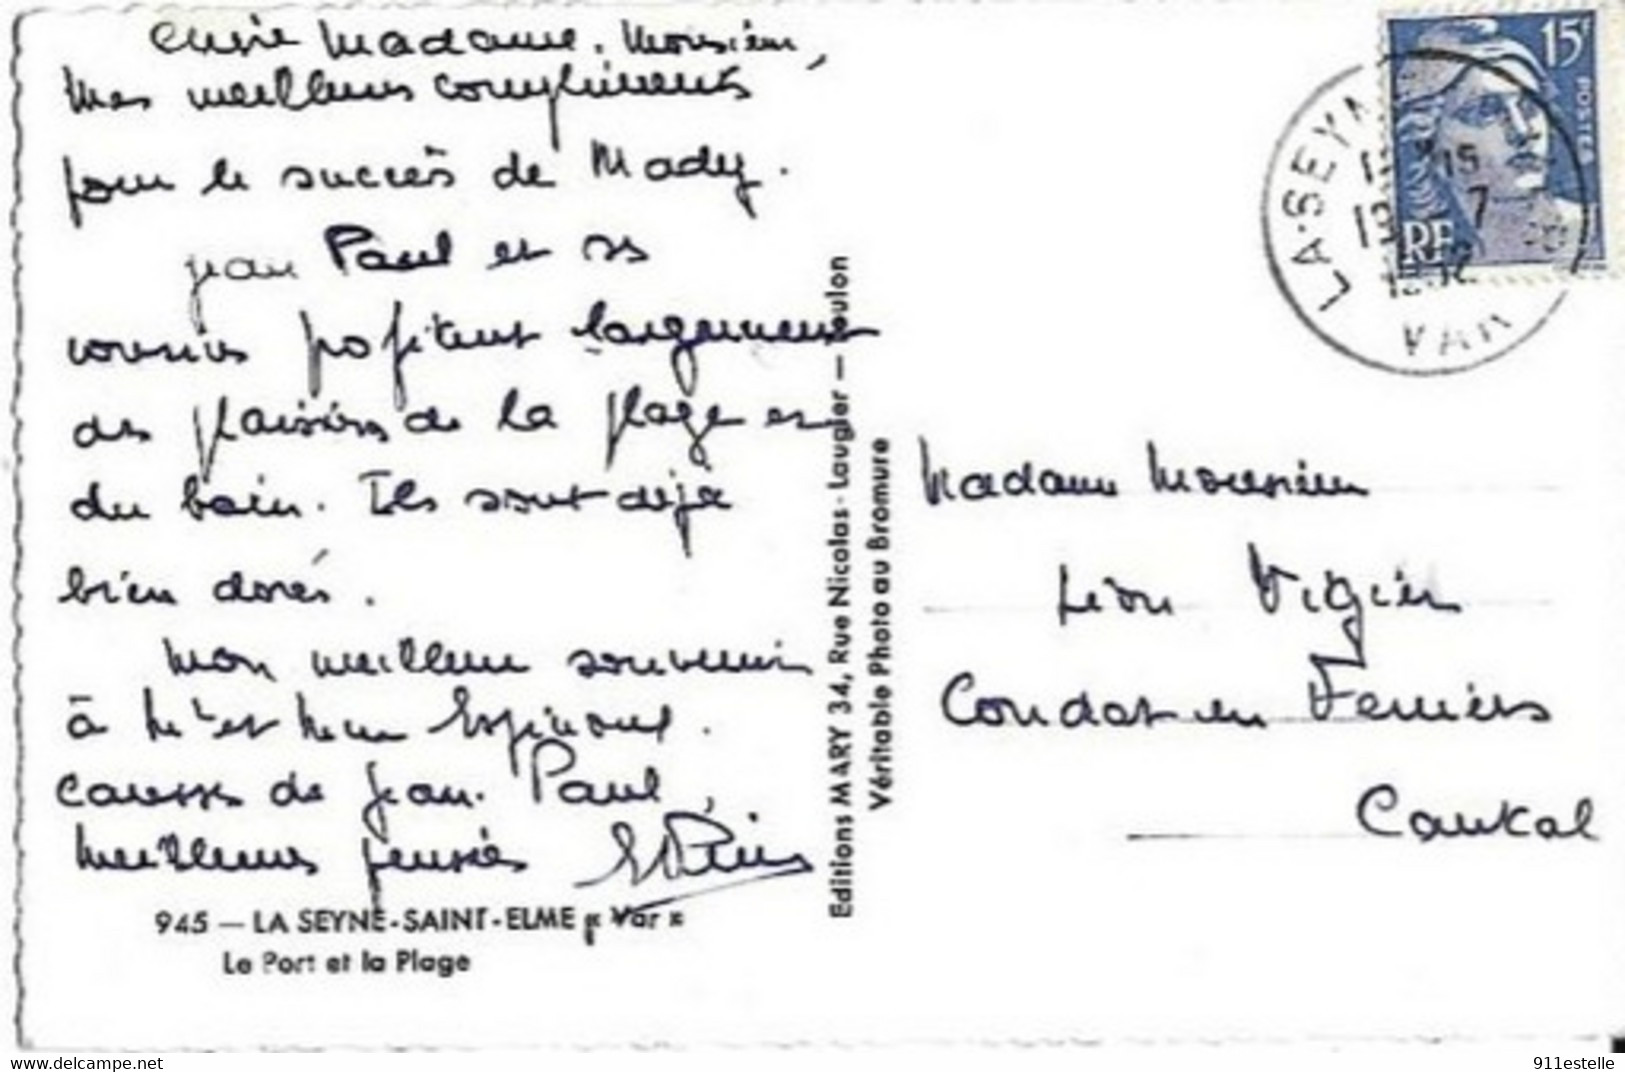 Chère Madame, Monsieur,
Mes meilleurs compliments
pour le succès de Mady.
Jean Paul et ses
cousins profitent largement
des plaisirs de la plage et
du bain. Ils sont déjà
bien dorés.
Mon meilleur souvenir
à Mr et Mme Espinouse.
Caresses de Jean-Paul,
Meilleures pensées
945 — LA SEYNE-SAINT-ELME « Var »
Le Port et la Plage
Editions MARY 34, Rue Nicolas-Laugier — Toulon
Véritable Photo au Bromure
15F
POSTES
RF
LA-SEYN
VAR
Madame Monsieur
Léon Vigier
Condat en Feniers
Cantal
www.delcampe.net
911estelle